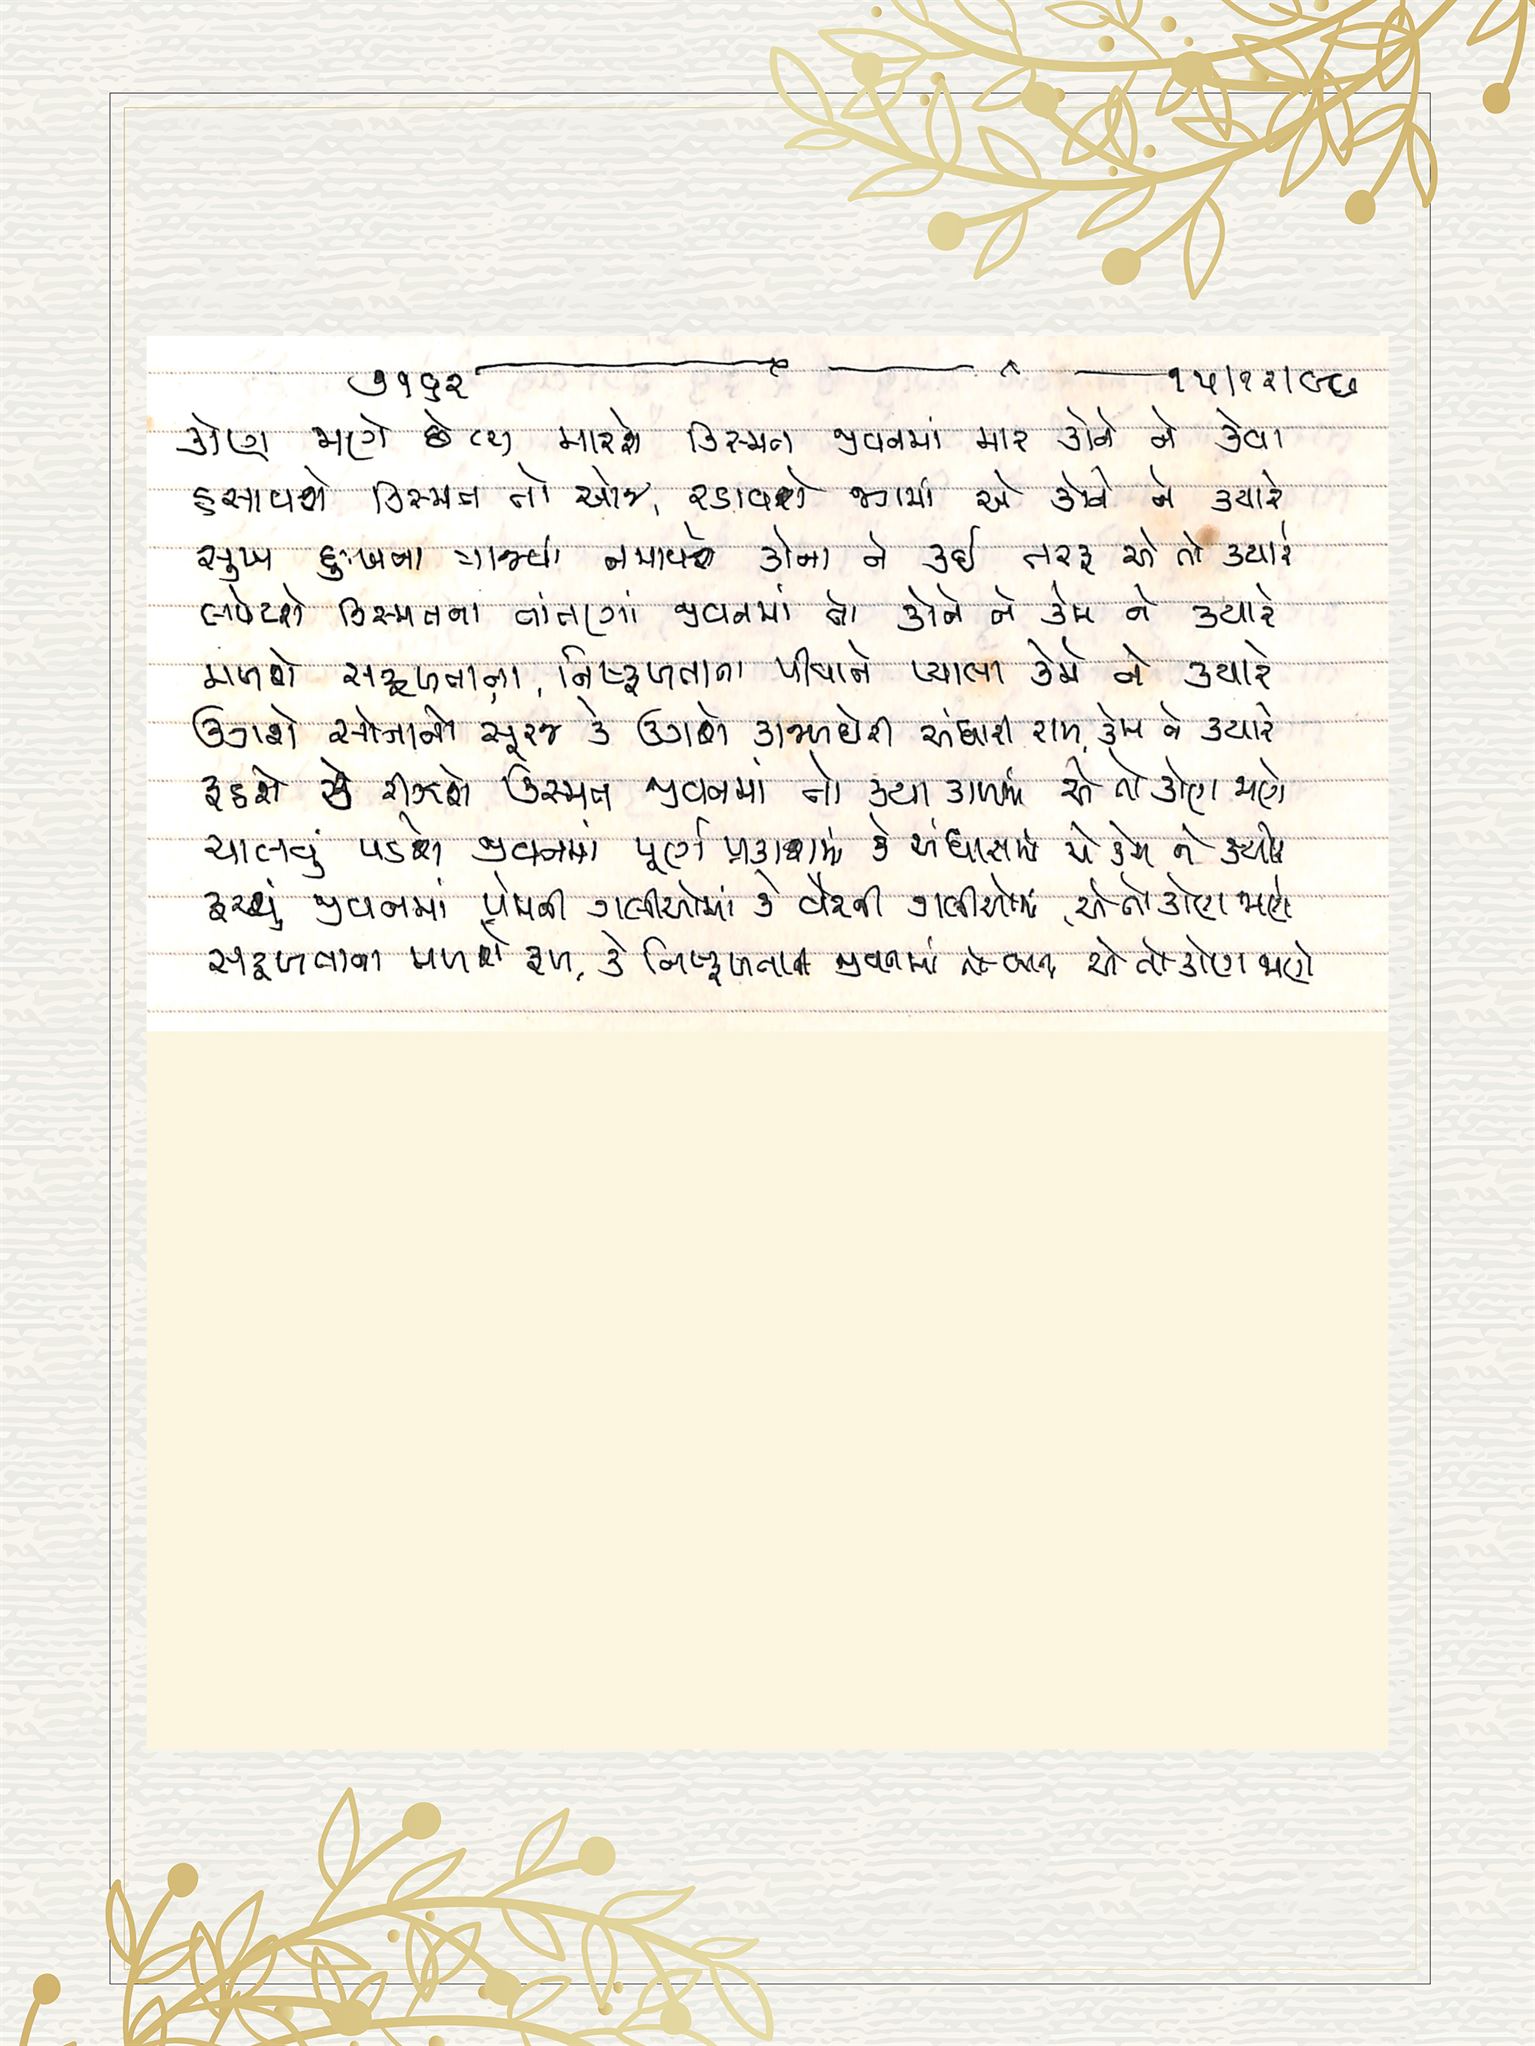 ૭૧૬૨ ૧૫/૧૨/૯૭
કોણ જાણે છે ક્યાં મારશે કિસ્મત જીવનમાં માર કોને ને કેવા
હસાવશે કિસ્મત તો એજ, રડાવશે જગમાં એ કોને ને ક્યારે
સુખ દુઃખના ત્રાજવાં નમાવશે કોના ને કઈ તરફ એ તો ક્યારે
લપેટાશે કિસ્મતના તાંતણાં જીવનમાં તો કોને ને કેમ ને ક્યારે
મળશે સફળતાના, નિષ્ફળતાના પીવાને પ્યાલા કેમ ને ક્યારે
ઊગશે સોનાનો સૂરજ કે ઊગશે કાજળઘેરી અંધારી રાત, કેમ ને ક્યારે
રૂઠશે કે રીઝશે કિસ્મત જીવનમાં તો ક્યા કાળમાં એ તો કોણ જાણે
ચાલવું પડશે જીવનમાં પૂર્ણ પ્રકાશમાં કે અંધારામાં એ કેમ ને ક્યારે
ફરવું જીવનમાં પ્રેમની ગલીઓમાં કે વૈરની ગલીઓમાં, એ તો કોણ જાણે
સફળતાના મળશે ફળ, કે નિષ્ફળતાના જીવનમાં એ તો કોણ જાણે